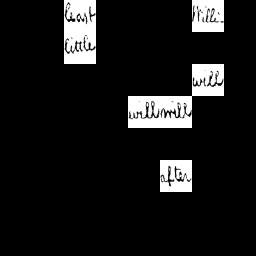 least Willi-
little
will
will will
after